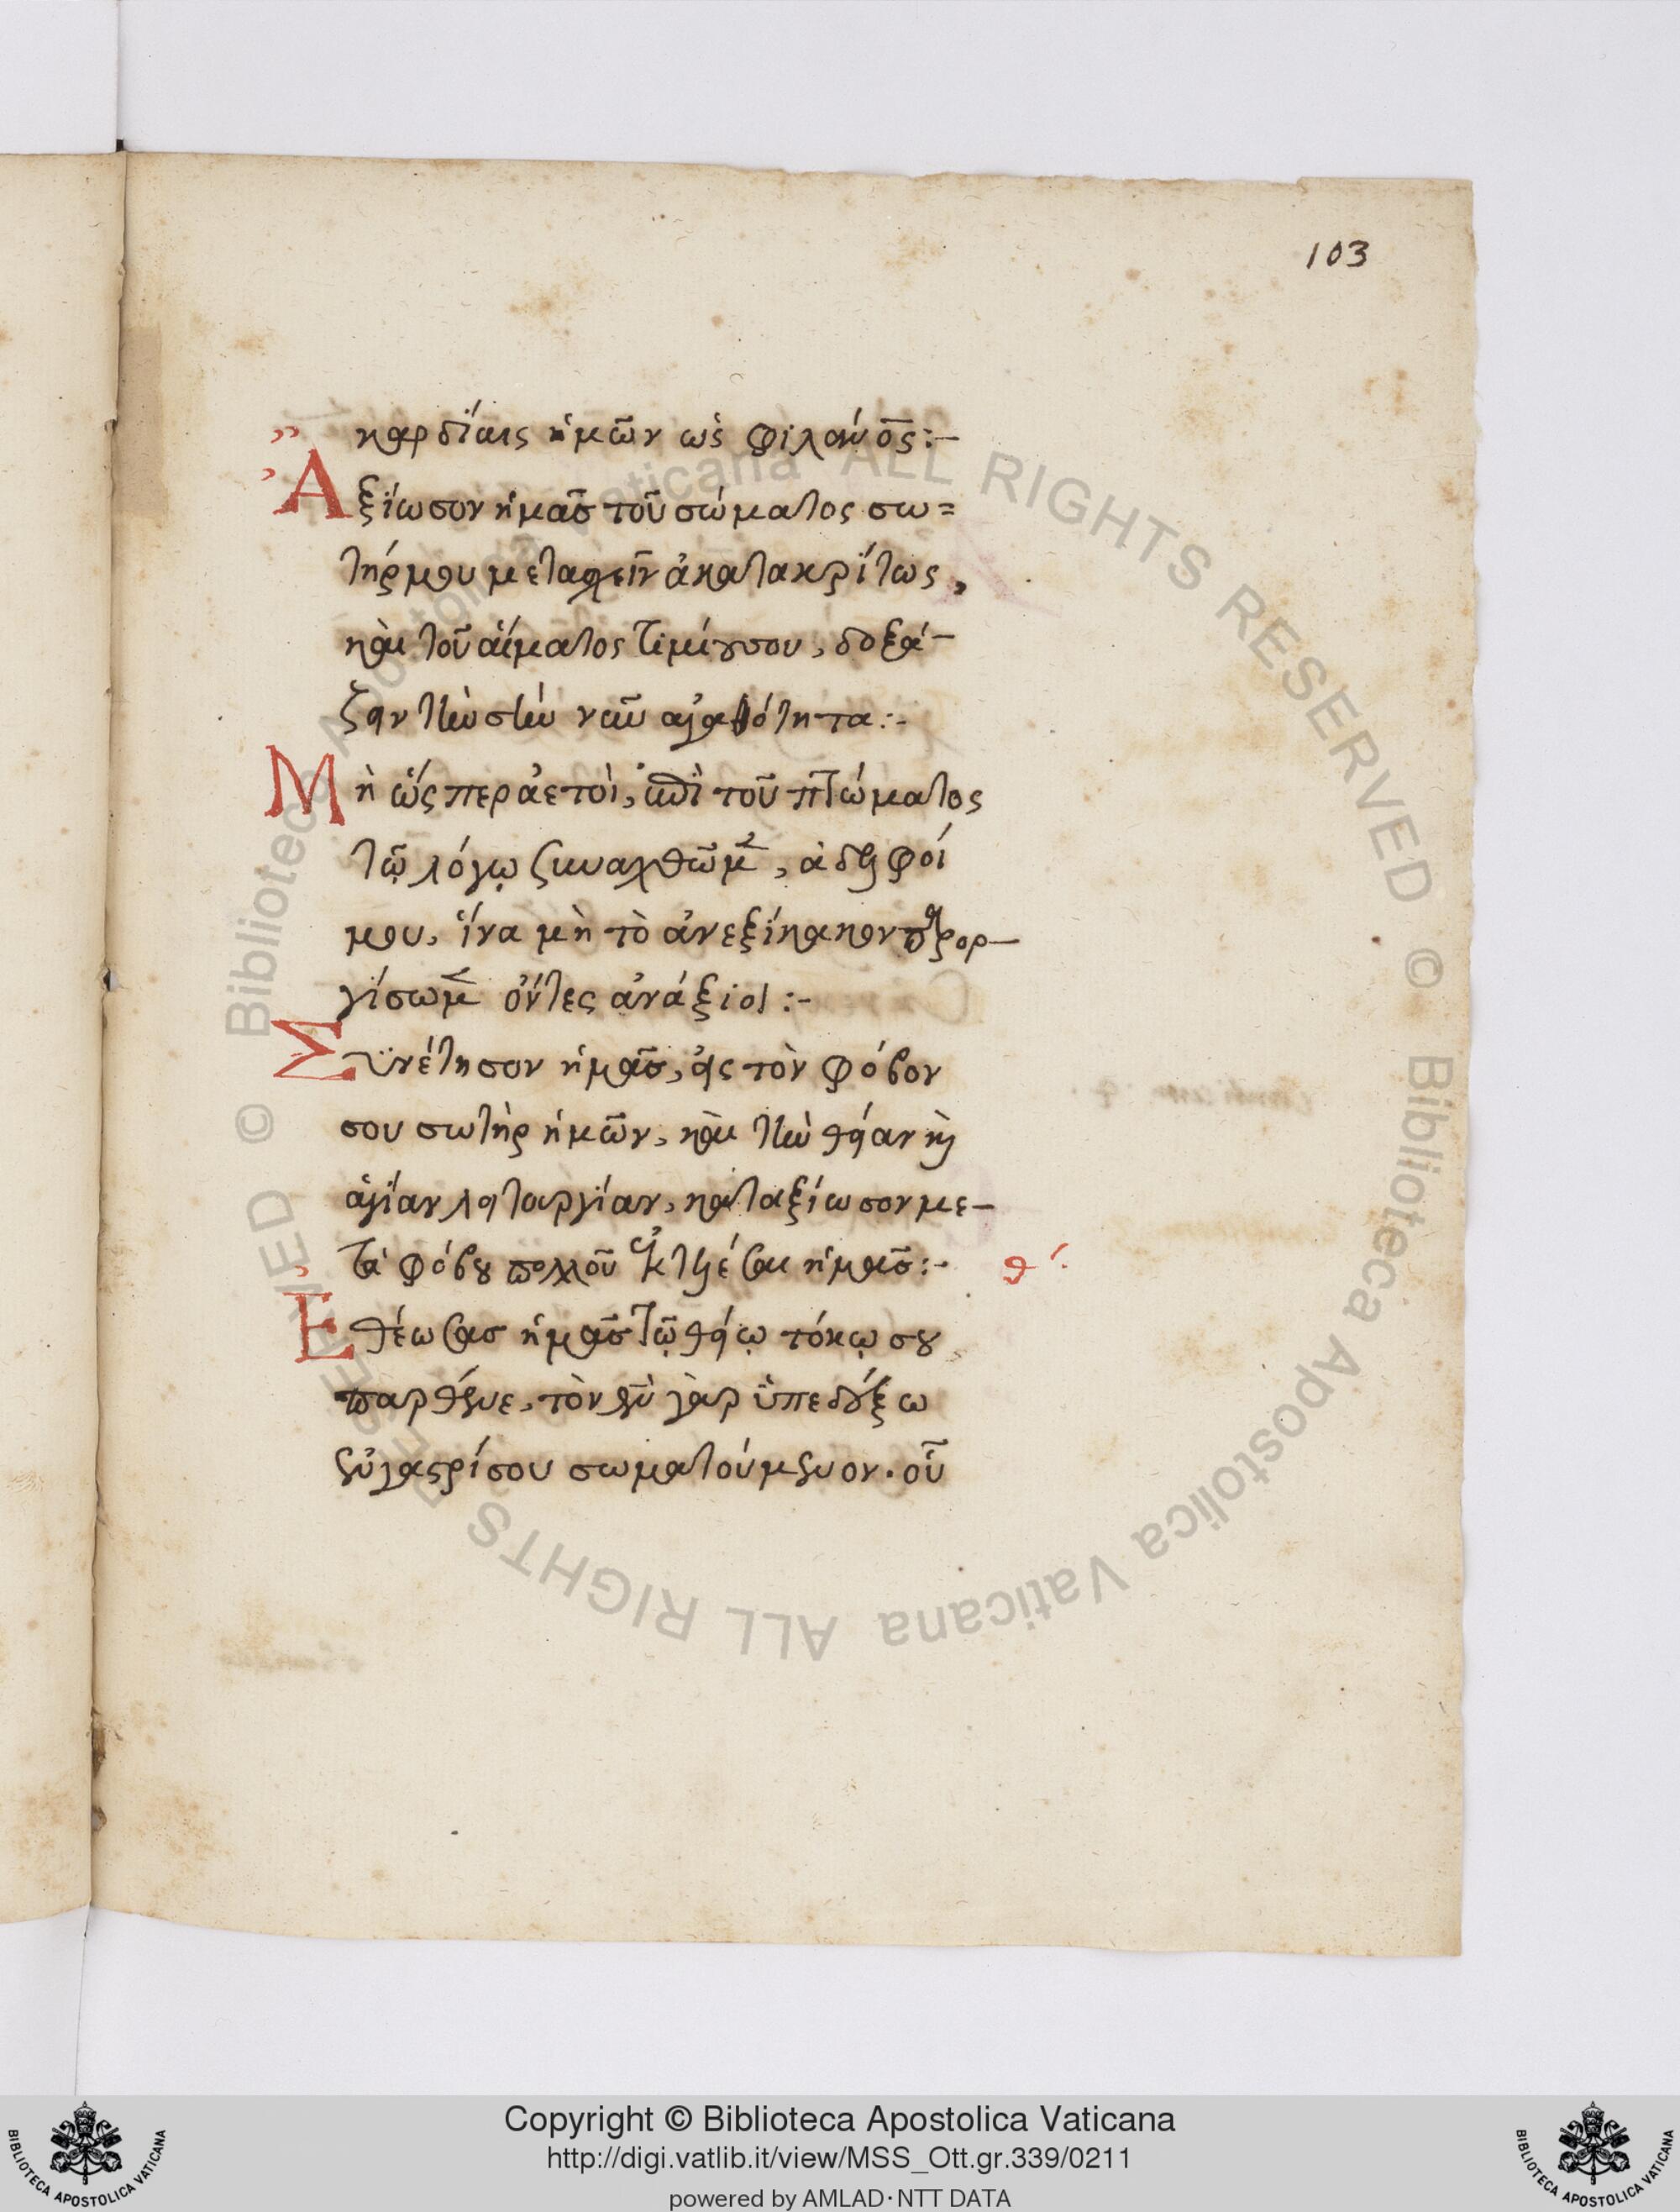 103
καρδίαις ἡμῶν ὡς φιλαν́ος:-
Ἀξίωσον ἡμᾶς τοῦ σώματος σω=
τήρ μου μετασχεῖν ἀκατακρίτως,
καὶ τοῦ αἵματος τιμίου σου, δοξά-
ζειν τὴν σὴν νῦν ἀγαθότητα:-
Μὴ ὥσπερ ἀετοὶ, ἐπὶ τοῦ πτώματος
τῷ λόγῳ συναχθῶμεν, ἀδελφοί
μου, ἵνα μὴ τὸ ἀνεξίκακον παρορ-
γίσωμεν ὄντες ἀνάξιοι:-
Συνέτησον ἡμᾶς, εἰς τὸν φόβον
σου σωτὴρ ἡμῶν, καὶ τὴν θείαν καὶ
ἁγίαν λειτουργίαν, καταξίωσον με-
τὰ φόβου πολλοῦ ἐκτελέσαι ἡμᾶς:- θ΄:
Ἐθέωσας ἡμᾶς τῷ θείῳ τόκῳ σου
παρθένε, τὸν ἕνα γὰρ ὑπεδέξω
ἐν γαστρί σου σωματούμενον. οὗ
Copyright © Biblioteca Apostolica Vaticana
http://digi.vatlib.it/view/MSS_Ott.gr.339/0211
powered by AMLAD·NTT DATA
BIBLIOTECA APOSTOLICA VATICANA
BIBLIOTECA APOSTOLICA VATICANA
© Biblioteca Apostolica Vaticana ALL RIGHTS RESERVED © Biblioteca Apostolica Vaticana ALL RIGHTS RESERVED